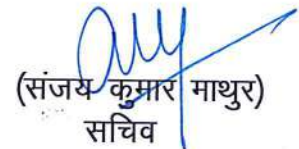 (संजय कुमार माथुर)
सचिव